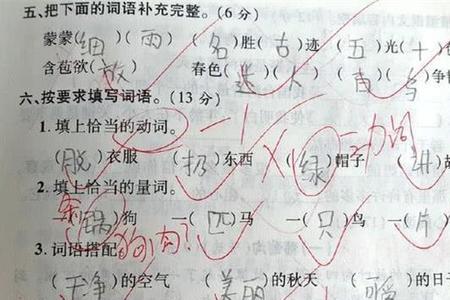 五、把下面的词语补充完整。(6 分)
蒙蒙(细)(雨) (名)胜(古)迹 (五)光(十)
含苞欲(放) 春色(迷)(人) (百)(鸟)争
六、按要求填写词语。(13 分)
-1
1. 填上恰当的动词。 动词
(脱)衣服 (扔)东西 (绿)帽子 (讲)故
2. 填上恰当的量词。
条
(锅)狗 一(匹)马 一(只)鸟 一(片)
3. 词语搭配 狗肉?
(干净)的空气 (美丽)的秋天 的日